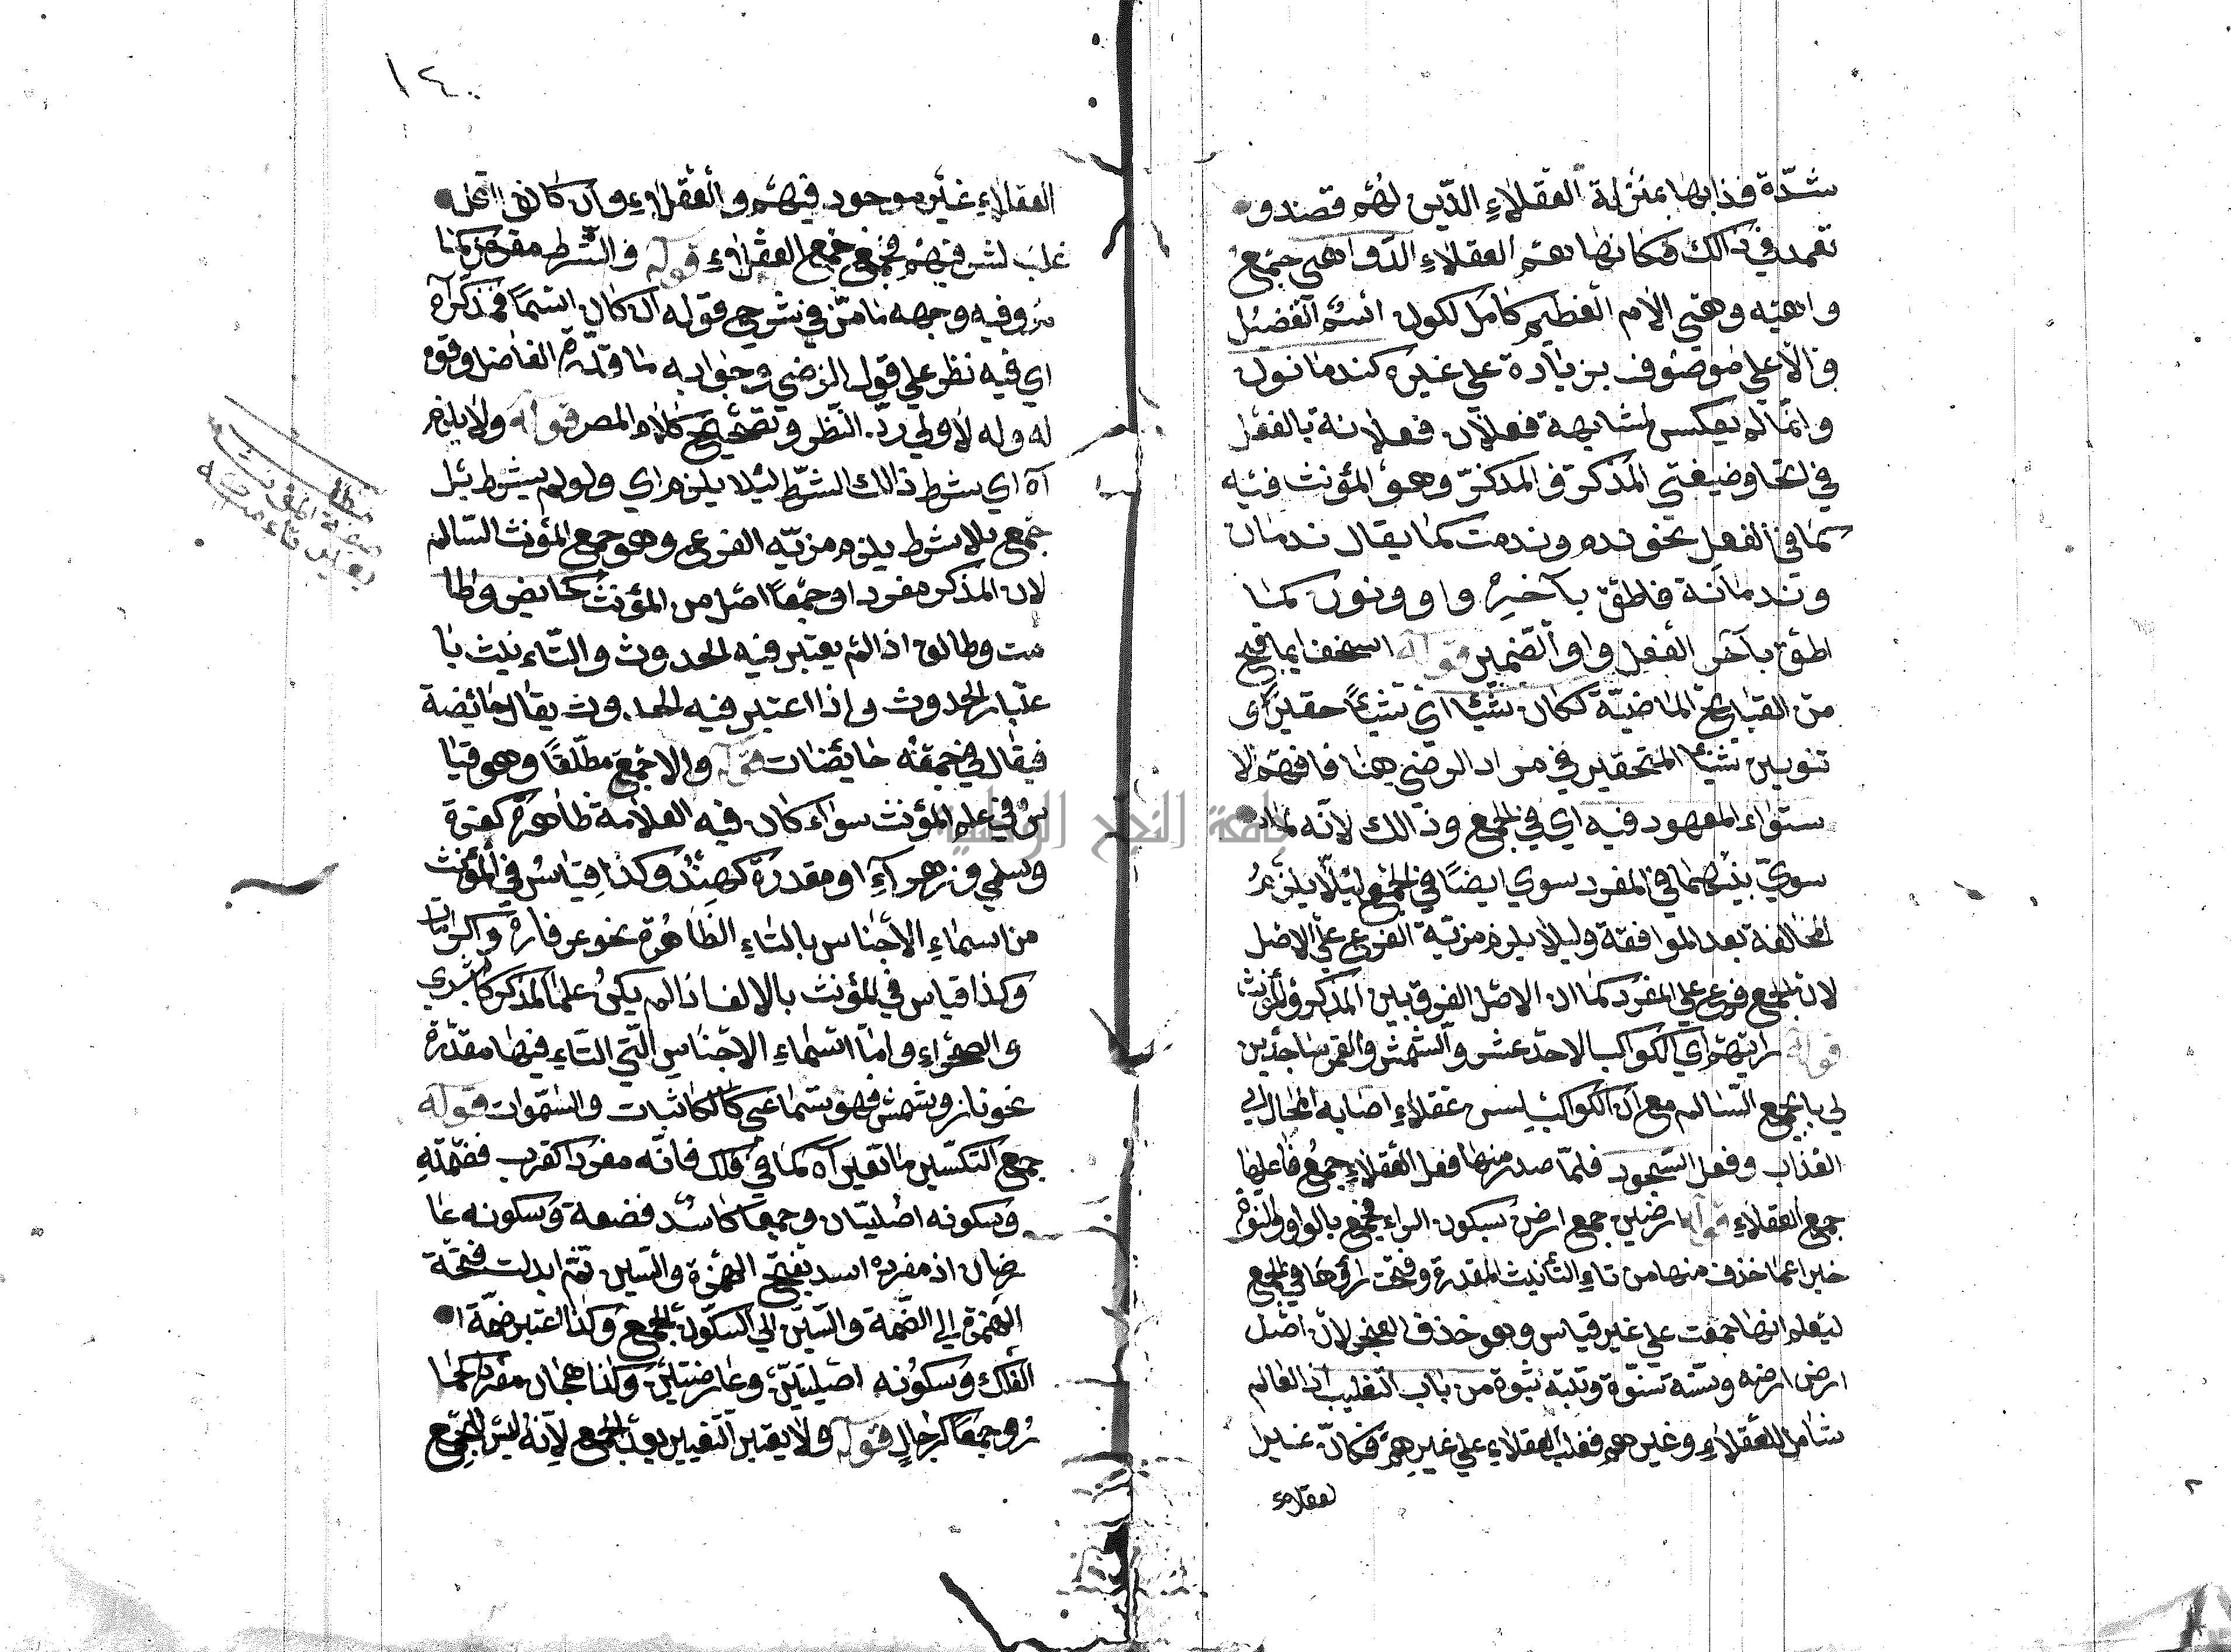 شدّة عذابها بمنزلة العقلاء الذين لهم قصد و
تعمد في ذالك فكانها هم العقلاء الدواهي جمع
واهية وهي الامر العظيم كامل لكون اسم التفضيل
والاعلي موصوف بزيادة علي غيره كندمانول
وانما لم يعكس لمشابهة فعلان فعلانة بالفعل
في لتحا وضيغتي المذكر في المذكر وهو المؤنث فيه
كما في الفعل نحو ندم وندمت كما يقال ندمان
وندمانة فاطق بآخره واو ونون كما
اطق بآخر الفعل واو الضمير قوله اسخف ايما قبح
من القبايح الماضية ككان شيئا اي شيئا حقيرا اي
تنوين شيئا المتحقير في مراد الرضي هنا فافهم لا
ستواء المعهود فيه اي في الجمع وذالك لانه لما
سوي بينهما في المفرد سوي ايضا في الجمع ليلا يلزم
المخالفة بعد الموافقة وليلا يلزم مزية الفرع علي الاصل
لان الجمع فرع علي المفرد كما ان الاصل الفرق بين المذكر والمؤنث
قوله رايتهم اي الكواكب الاحد عشر والشمش والقمر ساجدين
لي بالجمع السالم مع ان الكواكب ليس عقلاء اصابه المحال لي
العذاب وفعل السجود فلما صدر منها فعل العقلاء جمع فاعلها
جمع العقلاء قوله ارضين جمع ارض بسكون الراء فجمع بالواو والنون
خبرا عما خذف منها من تاء التأنيث المقدرة وفتحت راؤها في الجمع
ليعلم انها جمعت علي غير قياس وبعو خذف العجز لان اصل
ارض ارضه وسنه سنوة وثبة ثبوة من باب التغليب اذ العالم
شامل للعقلاء وغيرهم فغلب العقلاء علي غيرهم فكان غير ا
لعقلاء
١٤٠
العقلاء غير موجود فيهم والعقلاء وان كان اقل
غلب لشرفهم فجمع جمع العقلاء قوله والشرط مقدر كما
مر وفيه وجهه ما مر في شرح قوله ان كان اسما فمذكر اه
اي فيه نظر علي قول الرضي وجوابه ما قدره الفاضل وقو
له وله لاولي ردّ النظر وتصحيح كلام المصر قوله ولا يلزم
آه اي بشرط ذالك الشرط ليلا يلزم اي ولو لم يشرط بل
جمع بلا شرط يلزم مزية الفرع وهو جمع المؤنث السالم
لان المذكر مفردا وجمعا اصل من المؤنث كحايض وطا
مت وطالق اذا لم يعتبر فيه الحدوث والتاء نيث با
عتبار الحدوث واذا اعتبر فيه الحدوث يقال حائضة
فيقال في جمعه حائضات قوله والا جمع مطلقا وهو قيا
س في علم المؤنث سواء كان فيه العلامة ظاهرة كعزة
وسلمي وزهراء او مقدرة كهند وكذا قياس في المؤنث
من اسماء الاجناس بالتاء الظاهرة نحو عرفارة
وكذا قياس في المؤنث بالالف اذا لم يكن علما لمذكر كا بشري
والصحراء واما اسماء الاجناس التي التاء فيها مقدرة
نحو نار وشمش فهو سماعي كالكائنات والسموات قوله
جمع التكسير ما تغير آه كما في فلك فانه مفرد اقرب فضمته
وسكونه اصليان وجمعا كاسد فضمة وسكونه عا
رضان اذ مفرده اسد بفتح الهمزة والسين ثم ابدلت فتحة
الهمزة الي الضمة والسين الي السكون الجمع وكذا اعتبر ضمة ا
لفلك وسكونه اصليتين وعارضتين وكذا هجان مفرد كحما
ر وجمعا كرجال قوله ولا يعتبر التغيير بعد الجمع لانه ليس الجمع